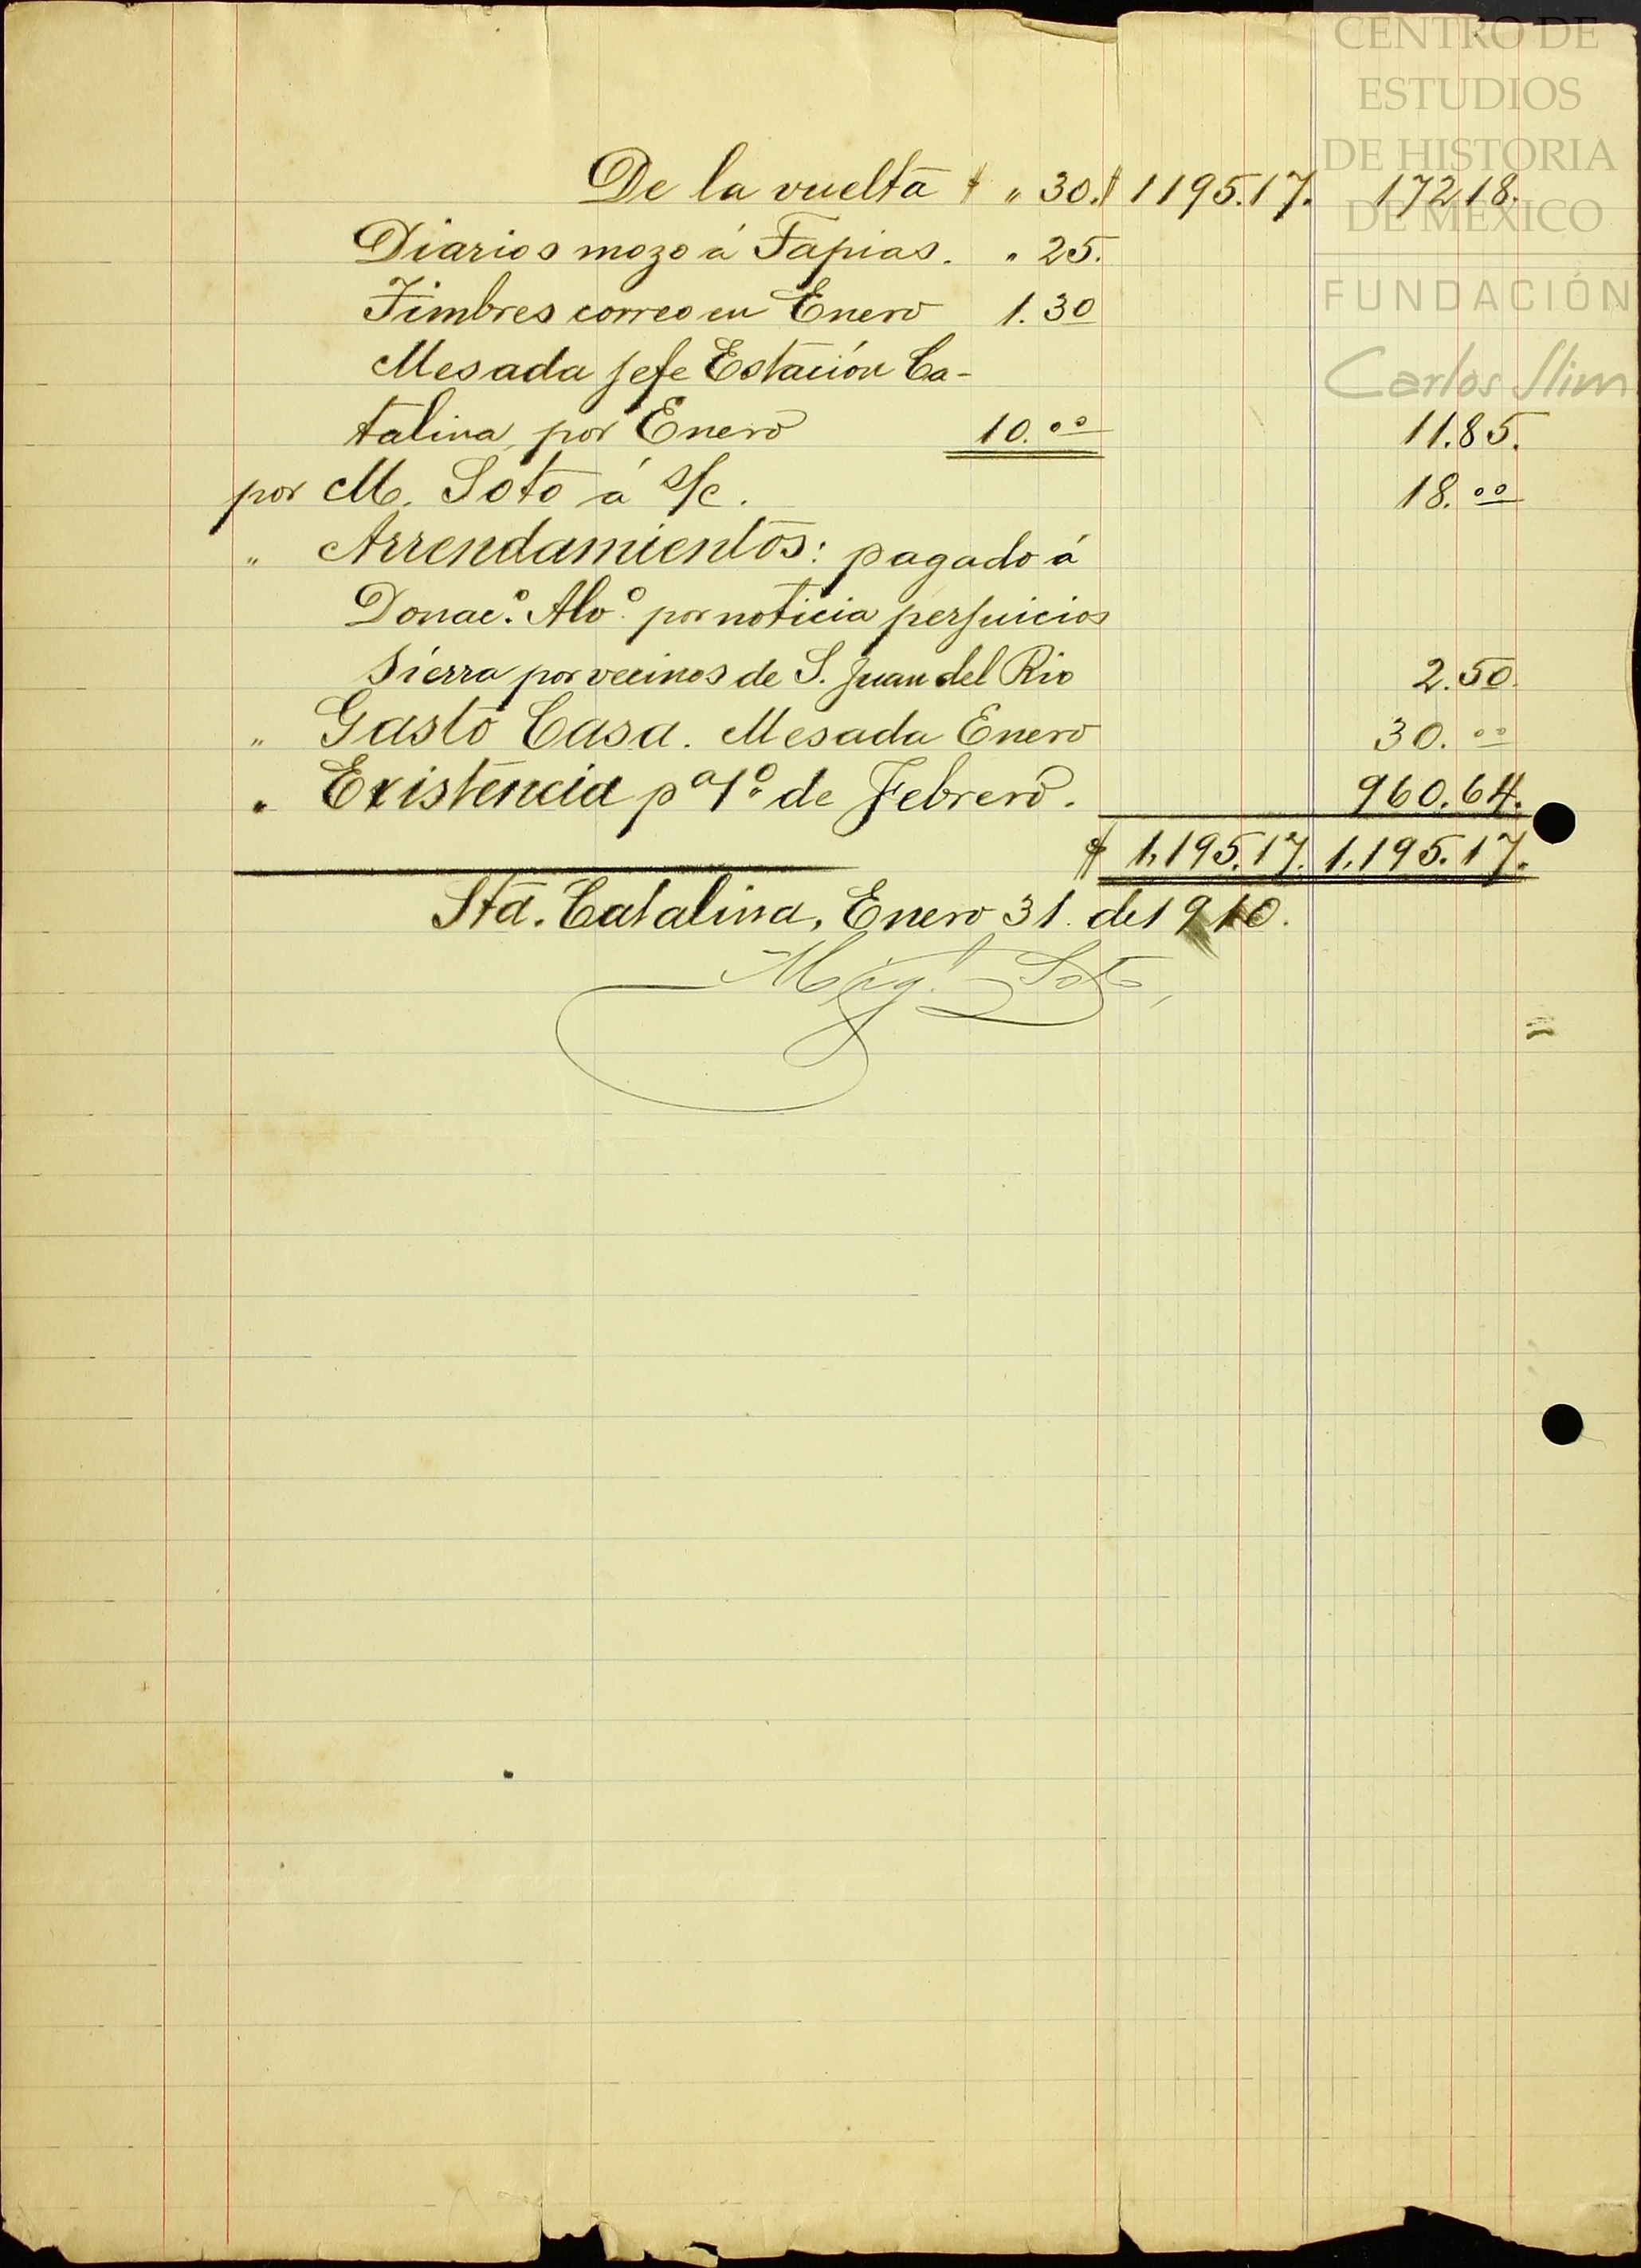 CENTRO DE
ESTUDIOS
DE HISTORIA
DE MÉXICO
FUNDACIÓN
Carlos Slim
De la vuelta $ „ 30. $ 1195.17. 172.18.
Diarios mozo á Tapias. „ 25.
Timbres correo en Enero 1.30
Mesada jefe Estación Ca-
talina, por Enero 10.00 11.85.
por M. Soto á s/c. 18.00
„ Arrendamientos: pagado á
Donac.º Alv.º por noticia perjuicios
sierra por vecinos de S. Juan del Rio 2.50.
„ Gasto Casa. Mesada Enero 30.00
„ Existencia pª 1º de Febrero. 960.64.
$ 1,195.17. 1,195.17.
Sta. Catalina, Enero 31. de 1910.
Mig.l Soto,